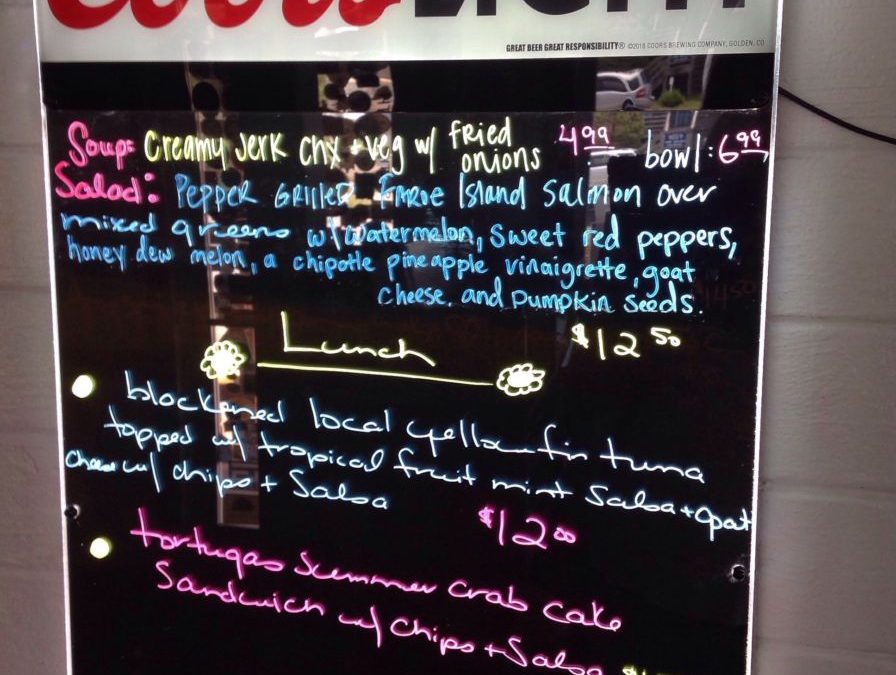 Coors LIGHT
GREAT BEER GREAT RESPONSIBILITY® ©2016 COORS BREWING COMPANY, GOLDEN, CO
Soup: Creamy Jerk chx + veg w/ fried onions 4.99 bowl: 6.99
Salad: PEPPER GRILLED FAROE Island Salmon over
mixed greens w/ watermelon, sweet red peppers,
honey dew melon, a chipotle pineapple vinaigrette, goat
cheese. and pumpkin seeds.
$12 50
Lunch
blackened local yellowfin tuna
topped w/ tropical fruit mint Salsa + goat
cheese w/ chips + Salsa
$12 00
tortugas Summer crab cake
Sandwich w/ chips + Salsa